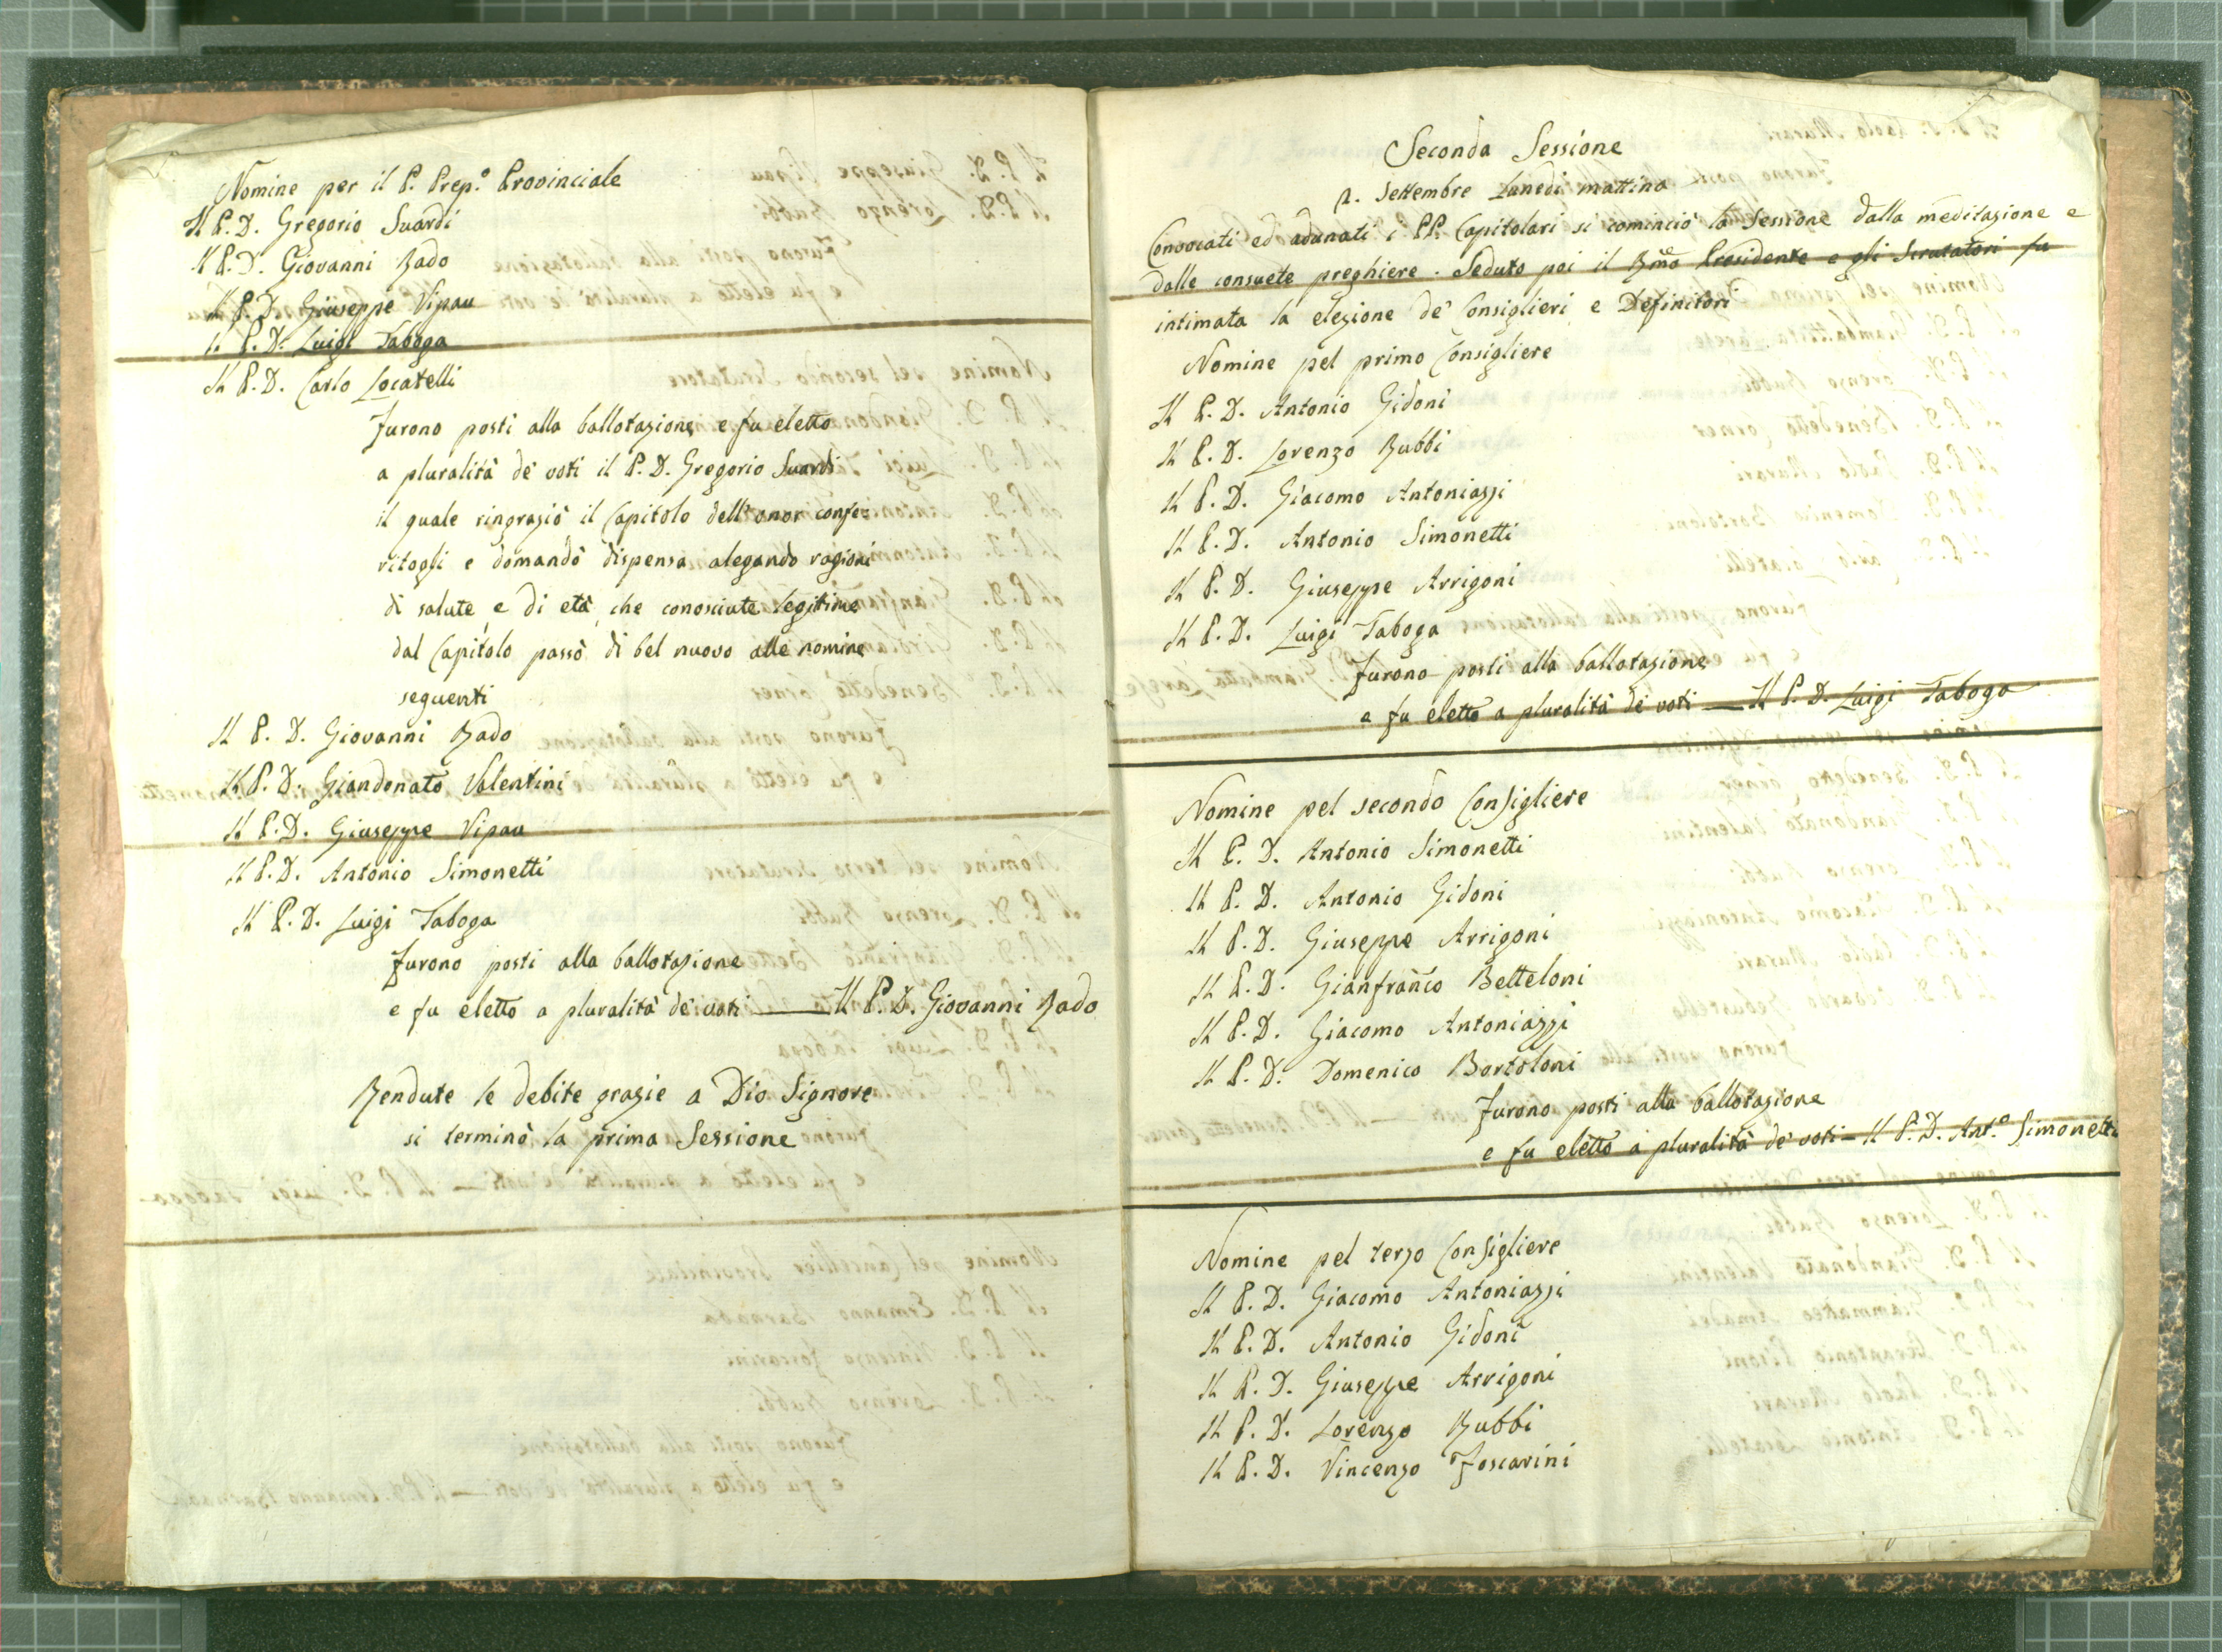 Nomine per il P. Prep.º Provinciale
Il P. D. Gregorio Suardi
Il P. D. Giovanni Rado
Il P. D. Giuseppe Vipau
Il P. D. Luigi Taboga
Il P. D. Carlo Locatelli
Furono posti alla ballotazione, e fu eletto
a pluralità de' voti il P. D. Gregorio Suardi
il quale ringraziò il Capitolo dell'onor confe-
ritogli e domandò dispensa alegando ragioni
di salute, e di età, che conosciute legitime
dal Capitolo passò di bel nuovo alle nomine
seguenti
Il P. D. Giovanni Rado
Il P. D. Giandonato Valentini
Il P. D. Giuseppe Vipau
Il P. D. Antonio Simonetti
Il P. D. Luigi Taboga
Furono posti alla ballotazione
e fu eletto a pluralità de' voti — Il P. D. Giovanni Rado
Rendute le debite grazie a Dio Signore
si terminò la prima Sessione
Seconda Sessione
2. Settembre Lunedì mattina
Convocati ed adunati i PP. Capitolari si cominciò la Sessione dalla meditazione e
dalle consuete preghiere. Seduto poi il Rmo Presidente e gli Scrutatori fu
intimata la elezione de' Consiglieri e Definitori
Nomine pel primo Consigliere
Il P. D. Antonio Gidoni
Il P. D. Lorenzo Rubbi
Il P. D. Giacomo Antoniazzi
Il P. D. Antonio Simonetti
Il P. D. Giuseppe Arrigoni
Il P. D. Luigi Taboga
Furono posti alla ballotazione
e fu eletto a pluralità de' voti — Il P. D. Luigi Taboga
Nomine pel secondo Consigliere
Il P. D. Antonio Simonetti
Il P. D. Antonio Gidoni
Il P. D. Giuseppe Arrigoni
Il P. D. Gianfranco Betteloni
Il P. D. Giacomo Antoniazzi
Il P. D. Domenico Bortoloni
Furono posti alla ballotazione
e fu eletto a pluralità de' voti — Il P. D. Ant.º Simonetti
Nomine pel terzo Consigliere
Il P. D. Giacomo Antoniazzi
Il P. D. Antonio Gidoni
Il P. D. Giuseppe Arrigoni
Il P. D. Lorenzo Rubbi
Il P. D. Vincenzo Foscarini